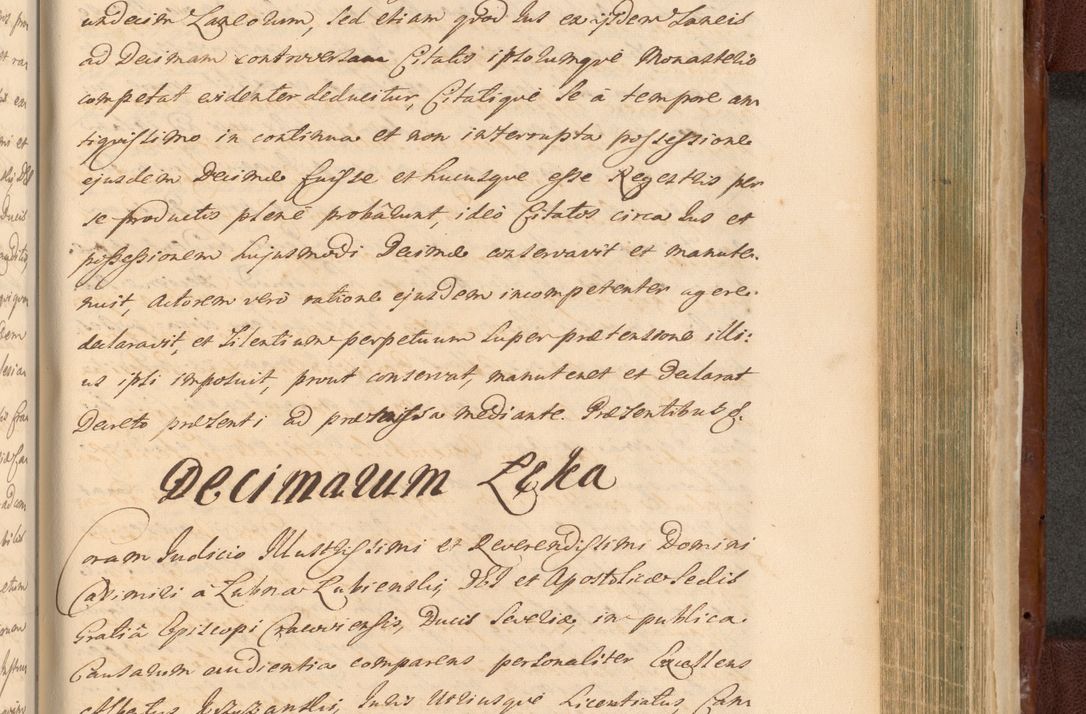 undecim Laneorum, sed etiam quod Ius ex ijsdem Laneis
ad Decimam controversam Citatis ipsorumque Monasterio
competat evidenter deducitur, Citatique se à tempore an
tiquissimo in continua et non interrupta possessione
ejusdem Decimæ fuisse et hucusque esse Regestris per
se productis plenè probârunt, ideò Citatos circa Ius et
possessionem hujusmodi Decimæ conservavit et manute
nuit, Actorem verò ratione ejusdem incompetenter agere
declaravit, et silentium perpetuum super prætensione illi:
us ipsi imposuit, prout conservat, manutenet et declarat
Decreto præsenti ad præmissa mediante. Præsentibus &.
Decimarum Łęka
Coram Iudicio Illustrissimi et Reverendissimi Domini
Casimiri à Łubna Łubienski, DEI et Apostolicæ Sedis
Gratiâ Episcopi Cracoviensis, Ducis Severiæ, in publica
Causarum audientia comparens personaliter Excellens
Albertus Iuris Utriusque Licentiatus, Cam